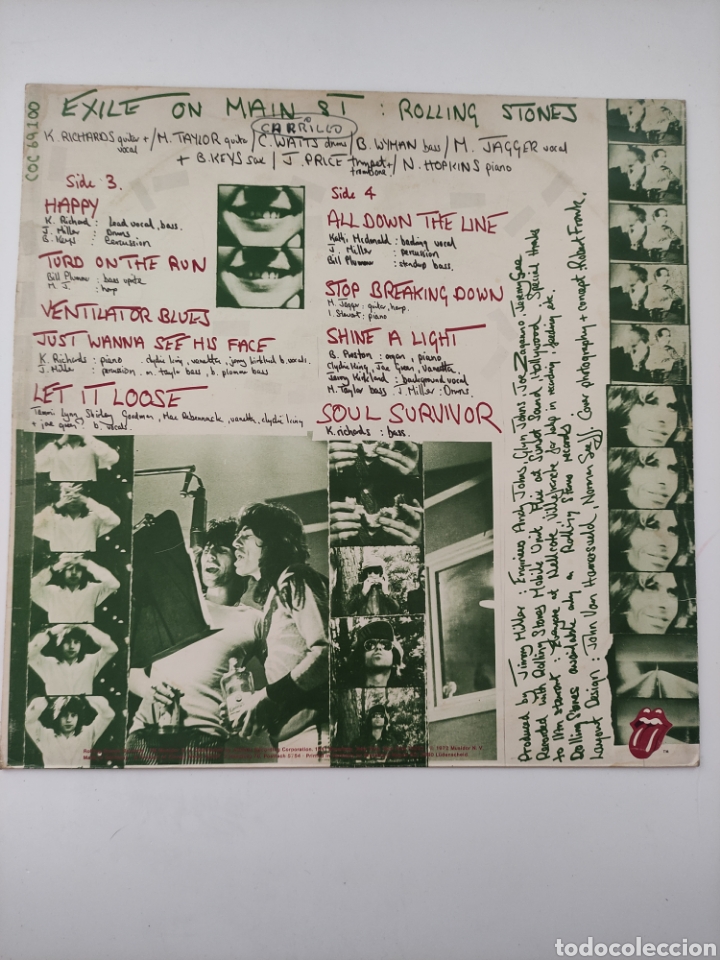 COC 69.100
EXILE ON MAIN ST : ROLLING STONES
CARRILLO
K. RICHARDS guitar + vocal / M. TAYLOR guitar / C. WATTS drums / B. WYMAN bass / M. JAGGER vocal
+ B. KEYS sax / J. PRICE trumpet + trombone / N. HOPKINS piano
Side 3.
HAPPY
K. Richard : Lead vocal, bass.
J. Miller : Drums
B. Keys : Percussion
TURD ON THE RUN
Bill Plummer : bass
M. J. : harp
VENTILATOR BLUES
JUST WANNA SEE HIS FACE
K. Richards : piano clydie king, vanetta, jerry kirkland b. vocals.
J. Miller : percussion, m. taylor bass, b. plummer bass
LET IT LOOSE
Tammi Lynn, Shirley Goodman, Mac Rebennack, vanetta, clydie king
+ joe green b. vocals.
Side 4
ALL DOWN THE LINE
Kathi Mcdonald : backing vocal
J. Miller : percussion
Bill Plummer : standup bass.
STOP BREAKING DOWN
M. Jagger, guitar, harp.
I. Stewart : piano
SHINE A LIGHT
B. Preston : organ, piano
Clydie King, Joe Green, Vanetta,
Jerry Kirkland : background vocal
M. Taylor bass. J. Miller : Drums.
SOUL SURVIVOR
K. richards : bass.
Produced by Jimmy Miller : Engineers Andy Johns, Glyn Johns, Joe Zagarino, Jeremy Gee
Recorded with Rolling Stones Mobile Unit. Mix at Sunset Sound, Hollywood. Special thanks
to : Everyone at Nellcote, Villefranche for help in recording, feeding etc.
Rolling Stones available only on Rolling Stones records.
Layout Design : John Van Hamersveld, Norman Seeff. Cover photography + concept Robert Frank.
Corporation.
1972
TM
todocoleccion